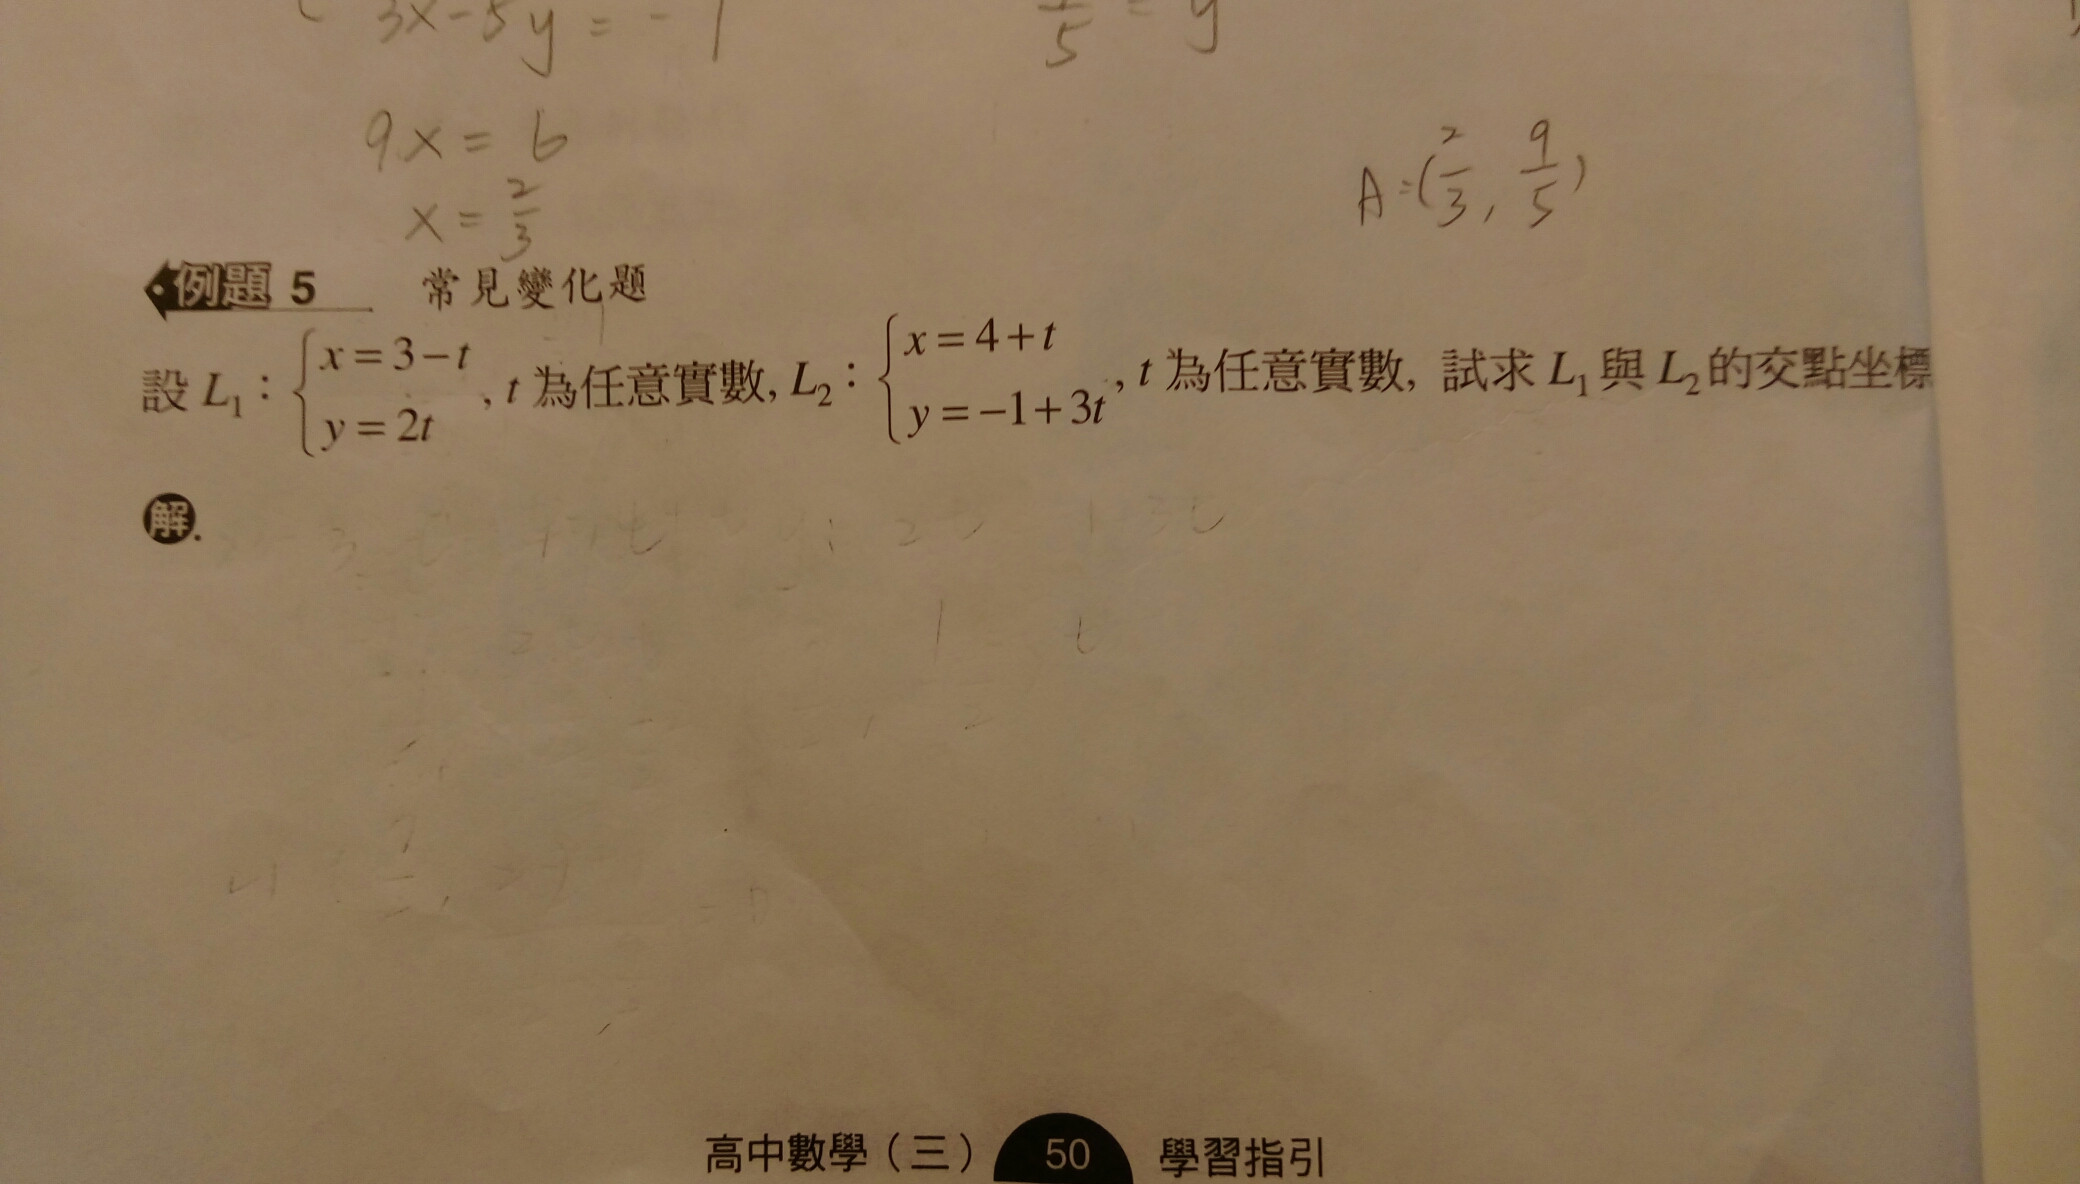 3x-5y=-1
9x=6
x=2/3
A=(2/3, 9/5)
例題 5 常見變化題
設 L₁：{x=3−t, y=2t, t 為任意實數, L₂：{x=4+t, y=−1+3t, t 為任意實數, 試求 L₁ 與 L₂ 的交點坐標
解.
高中數學（三） 50 學習指引